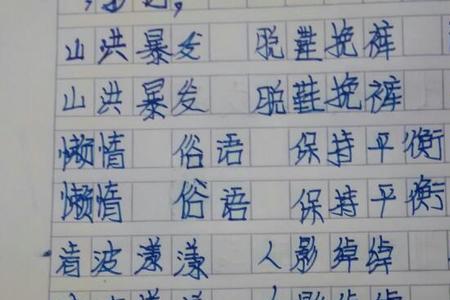 山洪暴发 脱鞋挽裤
山洪暴发 脱鞋挽裤
懒惰 俗语 保持平衡
懒惰 俗语 保持平衡
清波漾漾 人影绰绰